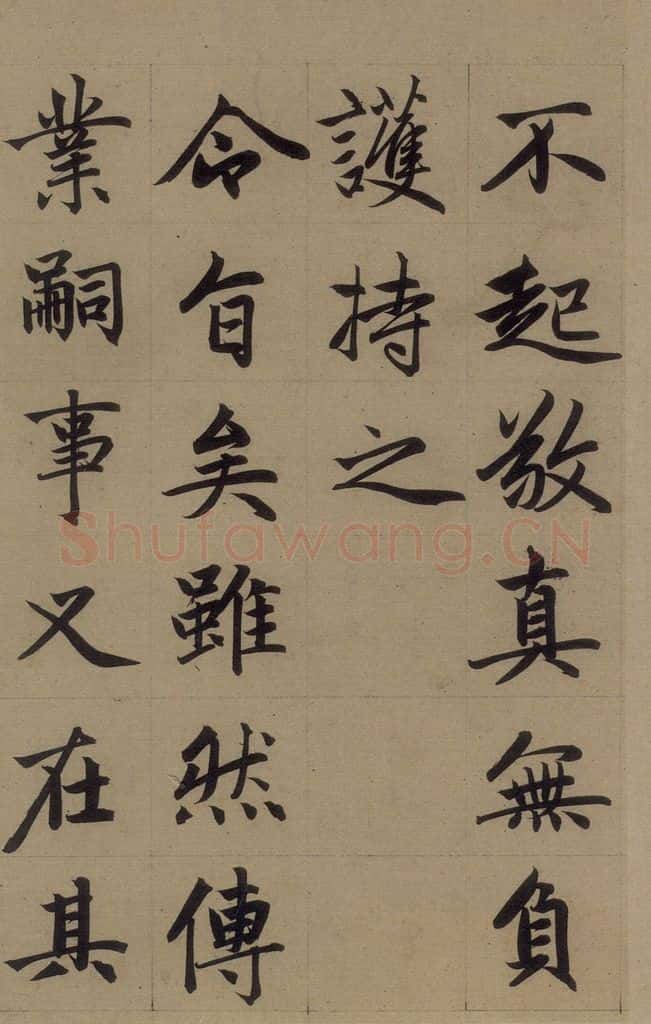 不起敬真無負
護持之
令旨矣雖然傳
業嗣事又在其
Shufawang.CN